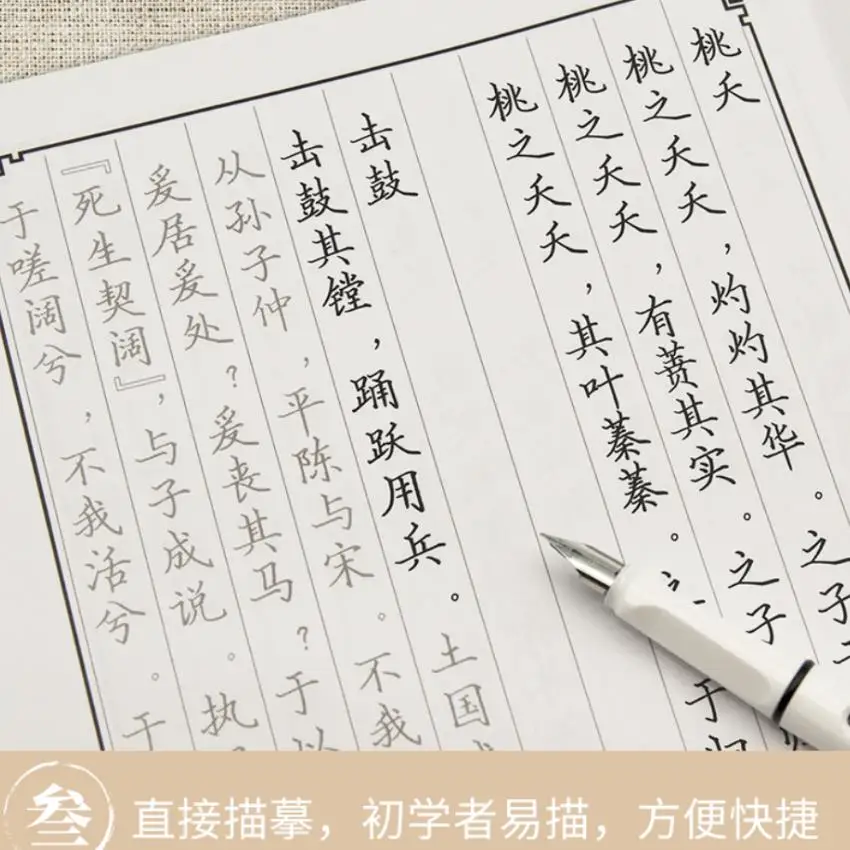 桃夭
桃之夭夭，灼灼其华。之子于
桃之夭夭，有蕡其实。之子
桃之夭夭，其叶蓁蓁。之于归
击鼓
击鼓其镗，踊跃用兵。土国
从孙子仲，平陈与宋。不我
爰居爰处？爰丧其马？于以
『死生契阔』，与子成说。执
于嗟阔兮，不我活兮。于
叁
直接描摹，初学者易描，方便快捷